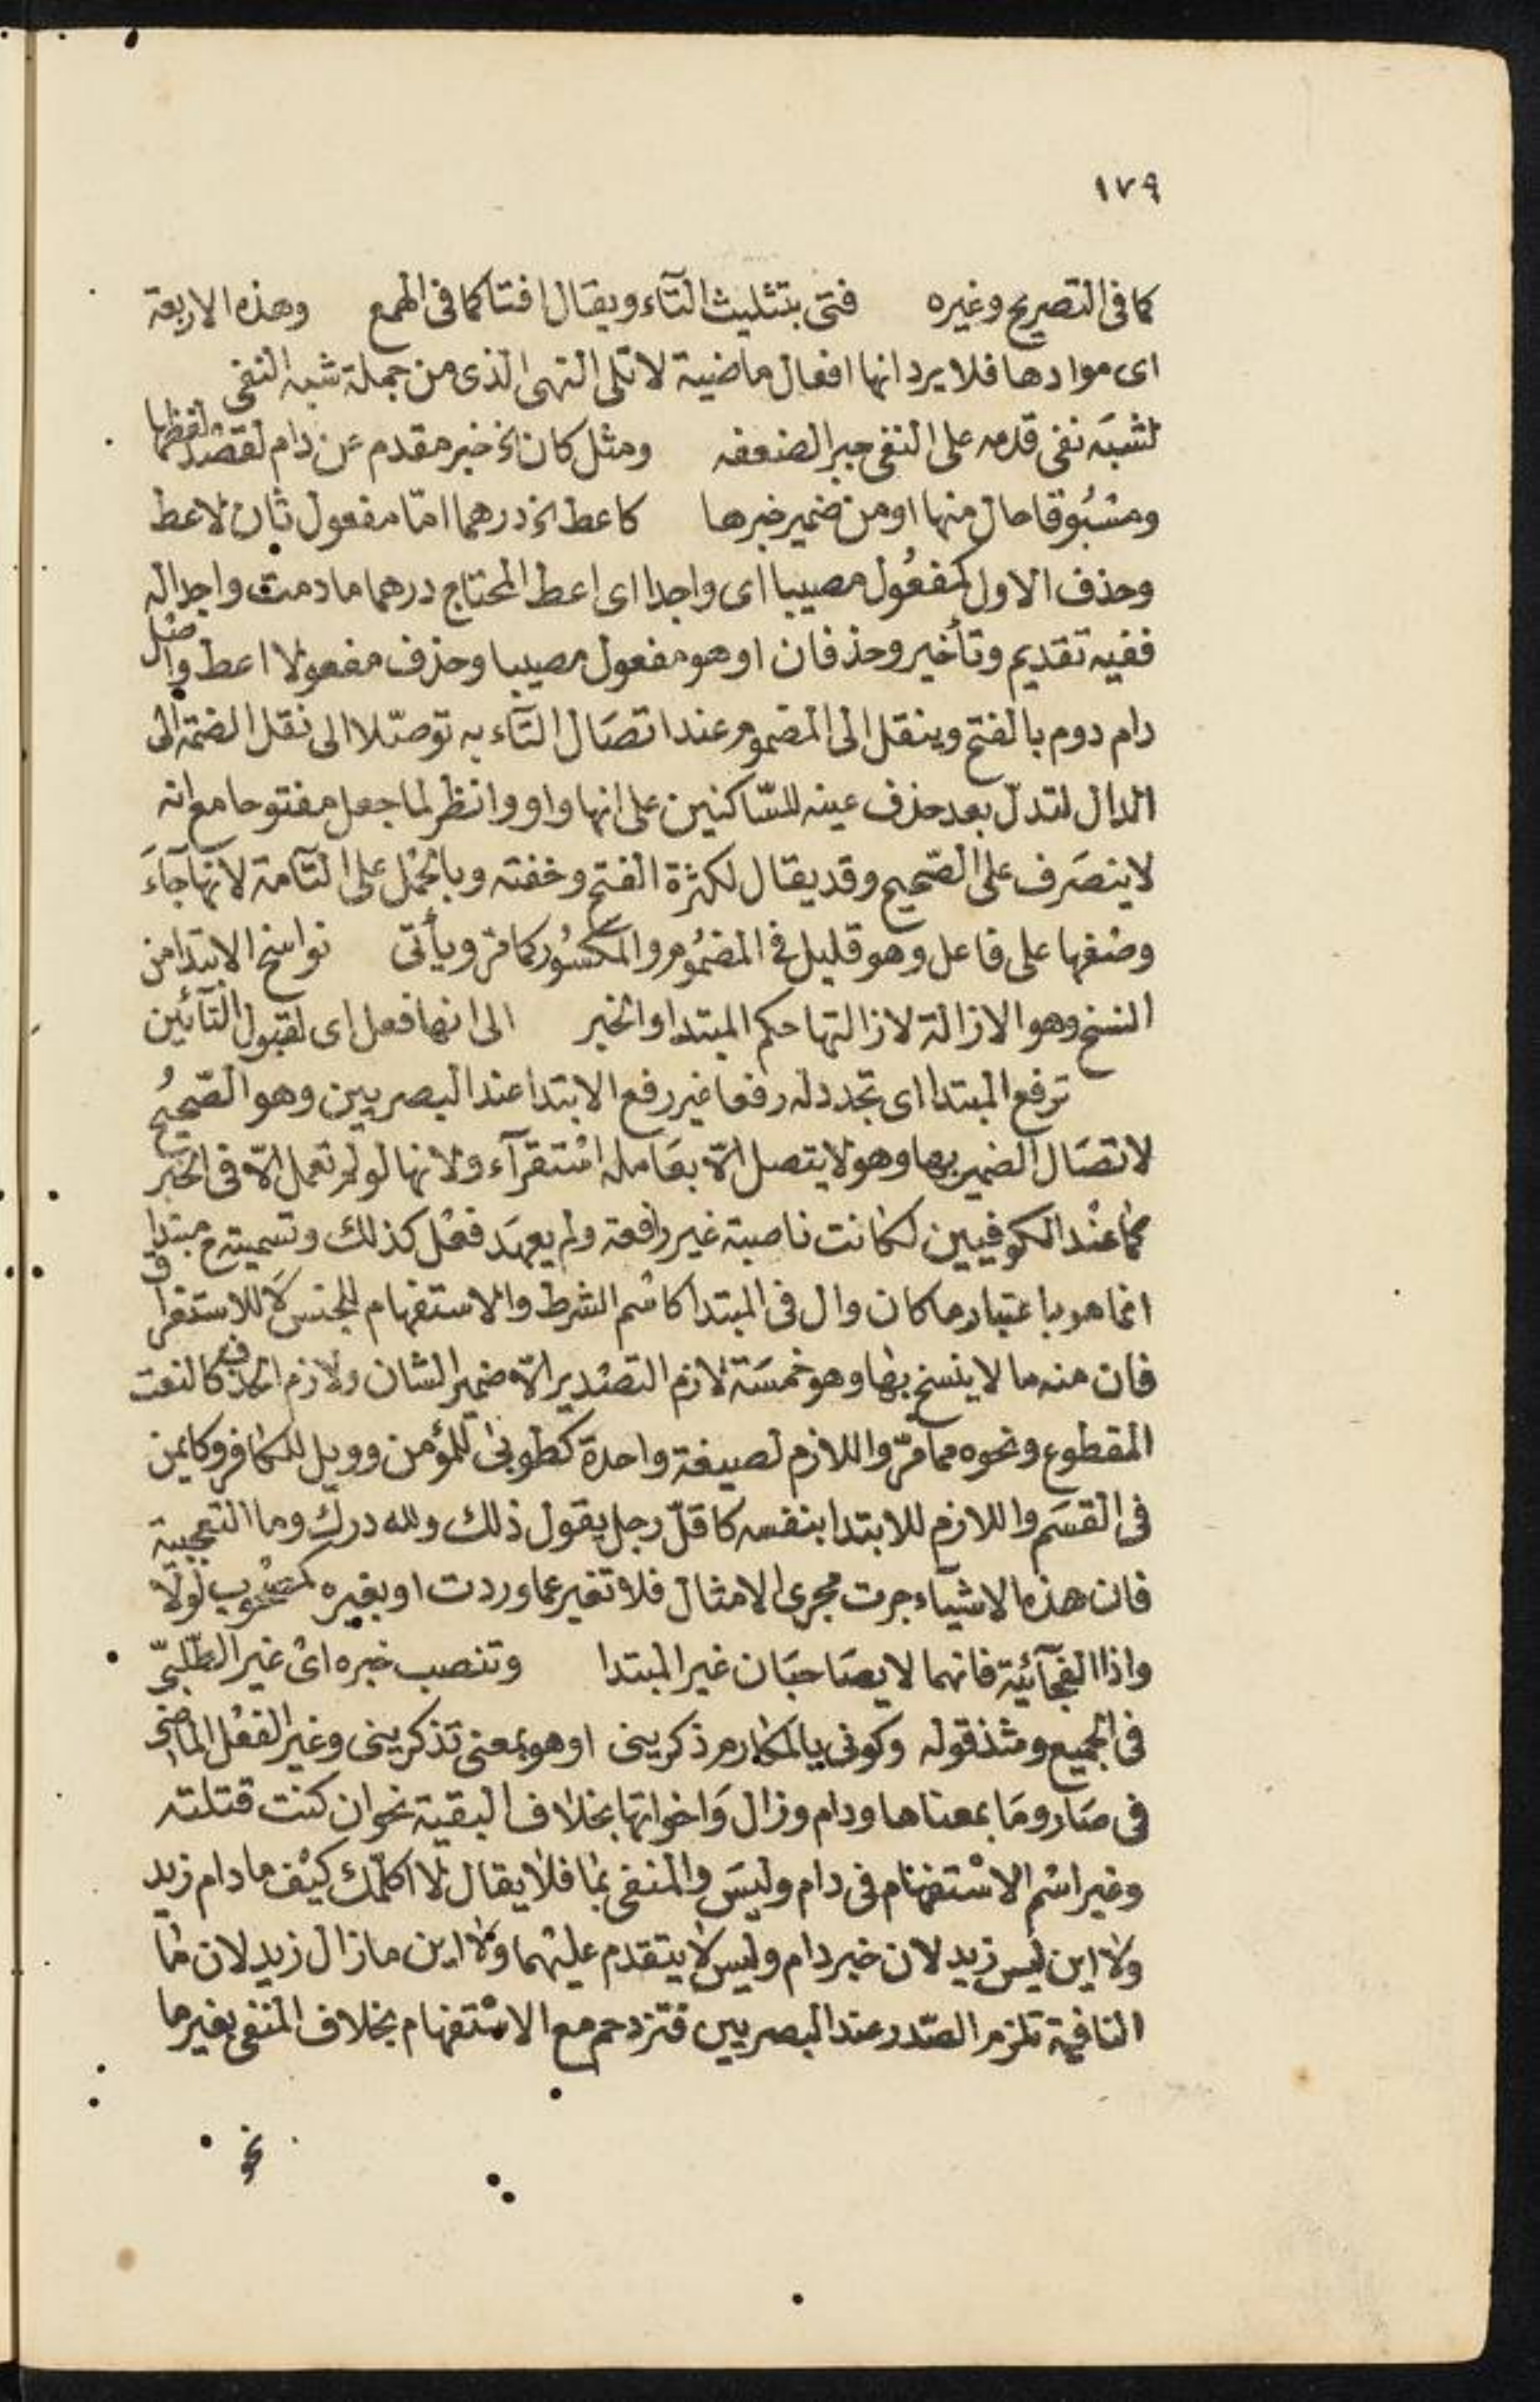 ١٧٩
كما فى التصريح وغيره فتئ بتثليث التآء ويقال افتا كما فى الهمع وهذه الاربعة
اى موادها فلا يرد انها افعال ماضية لا تلى النهى الذى من جملة شبه النفى
لشبه نفى قدمه على النفى جبرا لضعفه ومثل كان الخ خبر مقدم عن دام لقصد لفظها
ومسبوقا حال منها او من ضمير خبرها كاعط الخ درهما امّا مفعول ثان لاعط
وحذف الاول كمفعول مصيبا اى واجدا اى اعط المحتاج درهما ما دمت واجدا له
ففيه تقديم وتأخير وحذفان او هو مفعول مصيبا وحذف مفعولا اعط واصل
دام دوم بالفتح وينقل الى المضموم عند اتصال التآء به توصّلا الى نقل الضمة الى
الدال لتدلّ بعد حذف عينه للسّاكنين على انها واو وانظر لما جعل مفتوحا مع انه
لا ينصرف على الصّحيح وقد يقال لكثرة الفتح وخفته وبالحمل على التآمة لانها جآء
وصفها على فاعل وهو قليل فى المضموم والمكسور كما مرّ ويأتى نواسخ الابتدا من
النسخ وهو الازالة لازالتها حكم المبتدا والخبر الى انها فعل اى لقبول التآئين
ترفع المبتدا اى تجدد له رفعا غير رفع الابتدا عند البصريين وهو الصّحيح
لاتصال الضمير بها وهو لا يتصل الّا بعامله استقرآء ولانها لو لم تعمل الّا فى الخبر
كما عند الكوفيين لكانت ناصبة غير رافعة ولم يعهد فعل كذلك وتسميته ح مبتدا
انما هو باعتبار ما كان وال فى المبتدا كاسم الشرط والاستفهام للجنس لا للاستغراق
فان منه ما لا ينسخ بها وهو خمسة لازم التصدير الّا ضمير الشان ولازم الحذف كالنعت
المقطوع ونحوه مما مرّ واللازم لصيغة واحدة كطوبى للمؤمن وويل للكافر وكايمن
فى القسم واللازم للابتدا بنفسه كاقلّ رجل يقول ذلك ولله درك وما التعجبية
فان هذه الاشيآء جرت مجرى الامثال فلا تغير عما وردت او بغيره كمصحوب لولا
واذا الفجآئية فانهما لا يصاحبان غير المبتدا وتنصب خبره اى غير الطّلبىّ
فى الجميع ومثذ قوله وكونى بالمكارم ذكرينى او هو بمعنى تذكرينى وغير الفعل الماضى
فى صار وما بمعناها ودام وزال واخواتها بخلاف البقية نحو ان كنت قتلته
وغير اسم الاستفهام فى دام وليس والمنفى بما فلا يقال لا اكلّمك كيف ما دام زيد
ولا اين ليس زيد لان خبر دام وليس لا يتقدم عليهما ولا اين ما زال زيد لان ما
النافية تلزم الصّدر عند البصريين فتزدحم مع الاستفهام بخلاف المنفى بغيرها